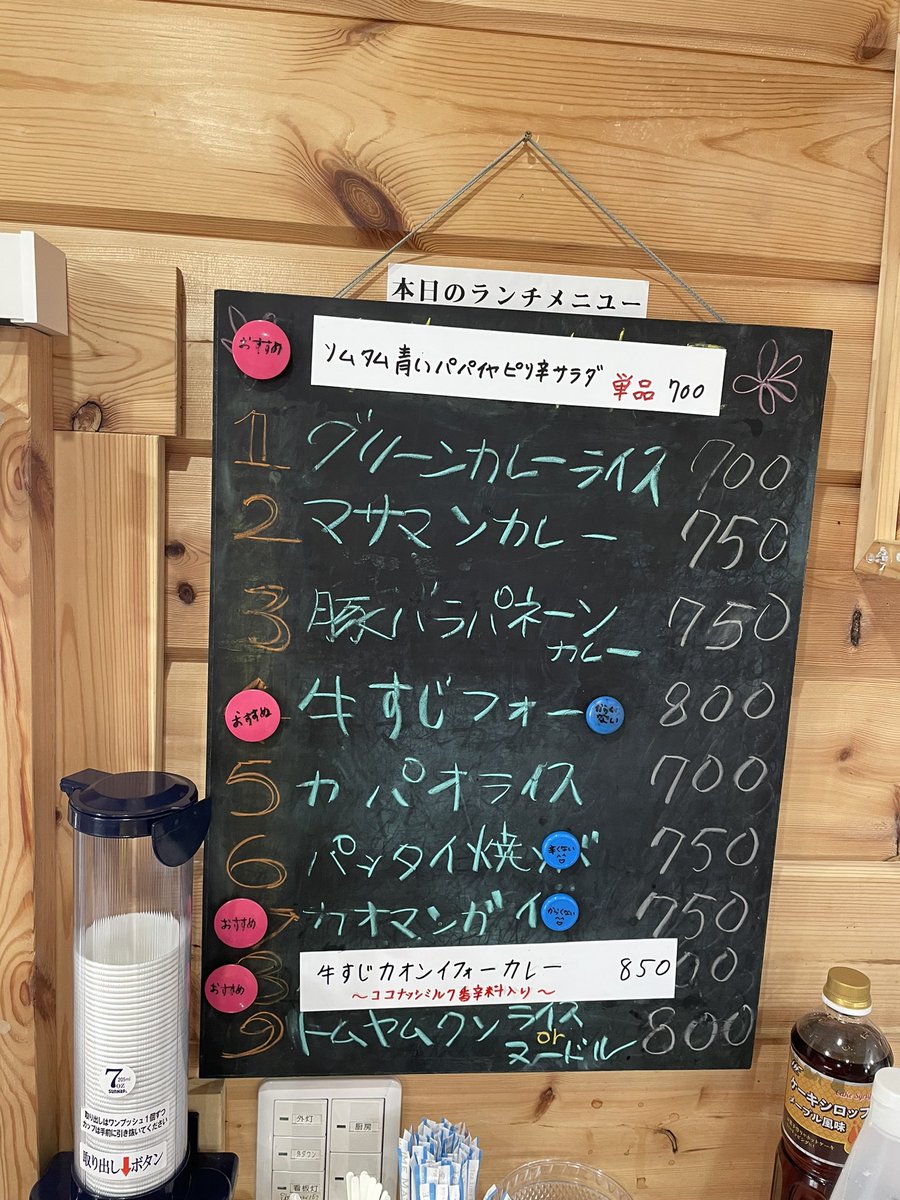 本日のランチメニュー
おすすめ
ソムタム青いパパイヤピリ辛サラダ
単品 700
1 グリーンカレーライス 700
2 マサマンカレー 750
3 豚バラパネーン 750
カレー
おすすめ 牛すじフォー からくない 800
5 カパオライス 700
6 パッタイ焼ソバ 辛くない 750
おすすめ 7 カオマンガイ からくない 750
おすすめ 8 牛すじカオソイフォーカレー 850 00
～ココナッツミルク香辛料入り～
9 トムヤムクン ライス 800
or
ヌードル
7
OZ
205ml
SUNNAP
取り出しはワンプッシュ1個ずつ
カップは手前に引き抜いてください
取り出し↓ボタン
外灯
厨房
看板灯
ケーキシロップ
メープル風味